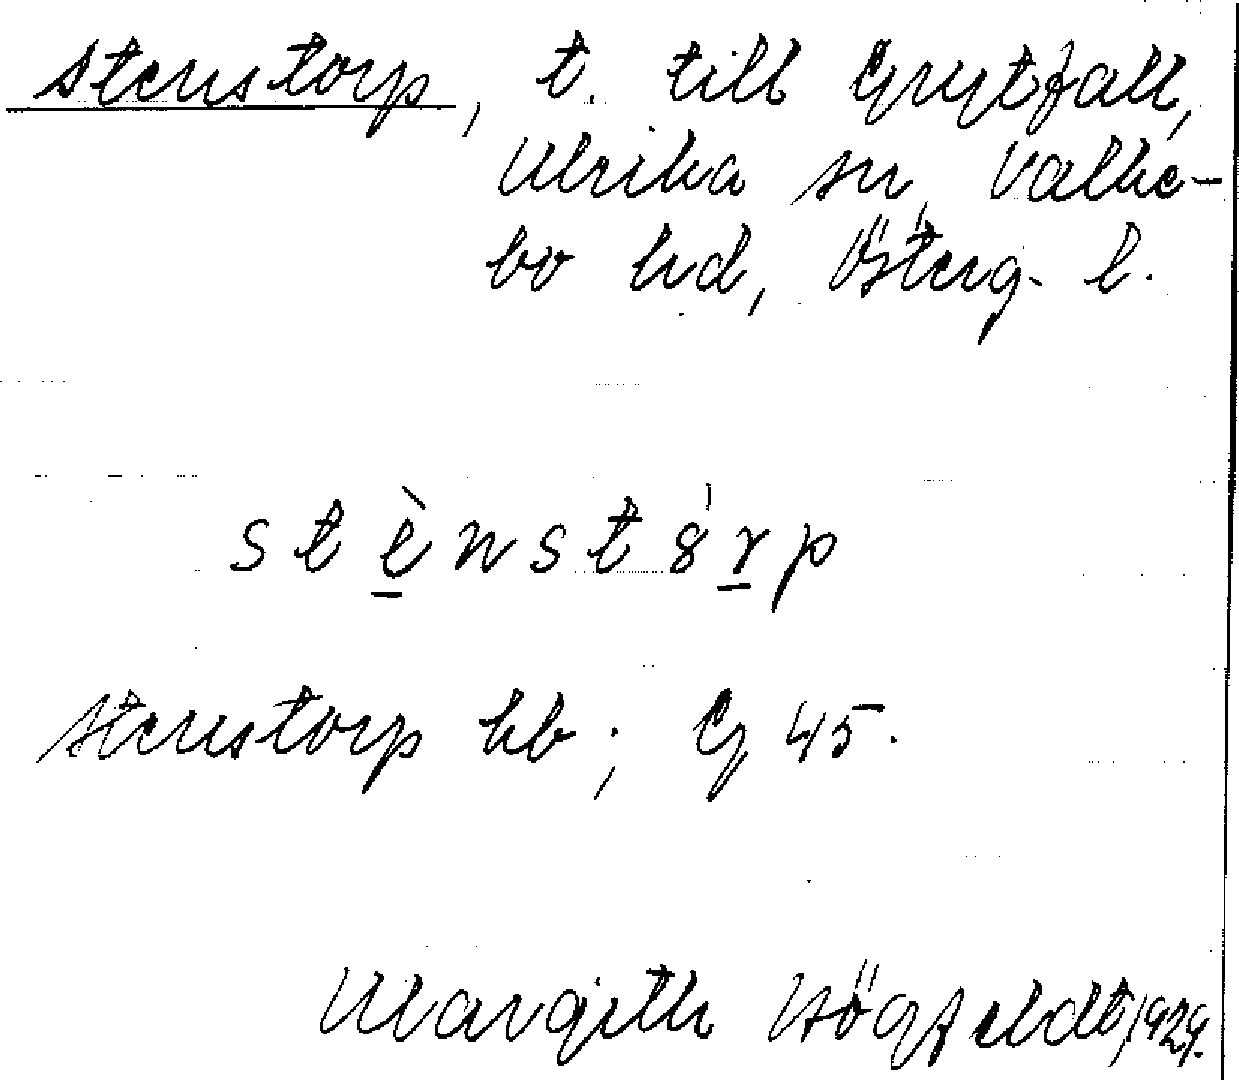 Stenstorp, t. till Grytfall,
Ulrika sn, Valke-
bo hd, Österg. l.
stènstó̀rp
Stenstorp hb; G 45.
Margith Högfeldt, 1929.